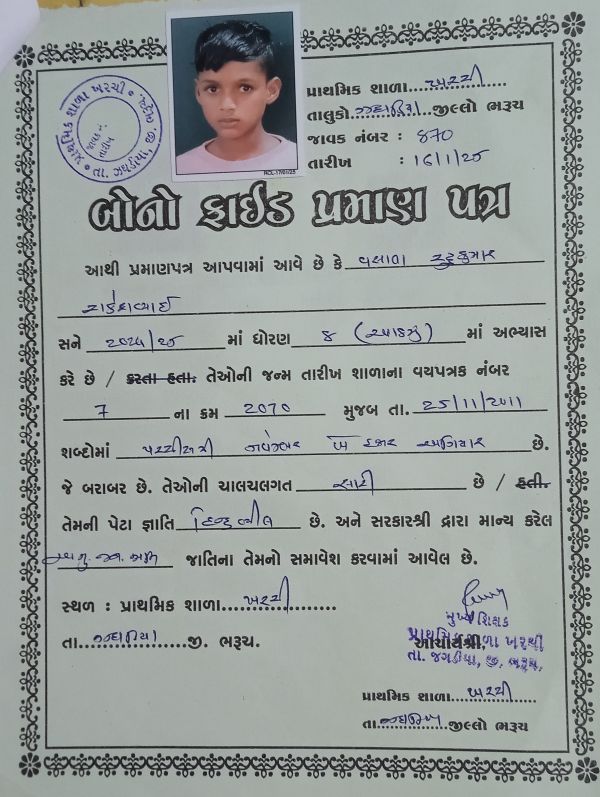 પ્રાથમિક શાળા ખરચી
તા. ઝઘડીયા, જી. ભરૂચ.
જાવક નં.
તારીખ
પ્રાથમિક શાળા ખરચી
તાલુકો ઝઘડિયા જીલ્લો ભરૂચ
જાવક નંબર : 870
તારીખ : 16/1/25
બોનો ફાઈડ પ્રમાણ પત્ર
આથી પ્રમાણપત્ર આપવામાં આવે છે કે વસાવા
સને 2024/25 માં ધોરણ ૮ (આઠમું) માં અભ્યાસ
કરે છે / કરતા હતા. તેઓની જન્મ તારીખ શાળાના વયપત્રક નંબર
7 ના ક્રમ 2070 મુજબ તા. 25/11/2011
શબ્દોમાં પચ્ચીસમી નવેમ્બર બે હજાર અગિયાર છે.
જે બરાબર છે. તેઓની ચાલચલગત સારી છે / હતી.
તેમની પેટા જ્ઞાતિ હિન્દુ ભીલ છે. અને સરકારશ્રી દ્વારા માન્ય કરેલ
અનુ. જન જાતિ જાતિના તેમનો સમાવેશ કરવામાં આવેલ છે.
સ્થળ : પ્રાથમિક શાળા ખરચી
તા. ઝઘડીયા જી. ભરૂચ.
મુખ્ય શિક્ષક
આચાર્યશ્રી,
પ્રાથમિક શાળા ખરચી
તા. ઝગડીયા, જી. ભરૂચ.
પ્રાથમિક શાળા ખરચી
તા. ઝઘડીયા જીલ્લો ભરૂચ